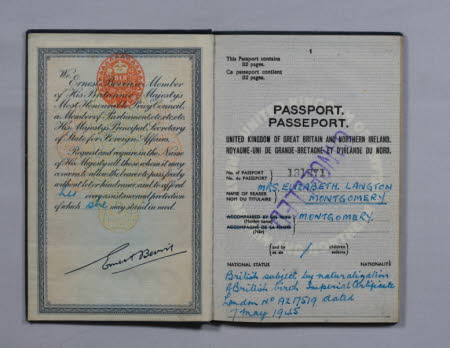 We Ernest Bevin a Member
of His Britannic Majesty's
Most Honourable Privy Council,
a Member of Parliament, etc. etc. etc.
His Majesty's Principal Secretary
of State for Foreign Affairs,
Request and require in the Name
of His Majesty all those whom it may
concern to allow the bearer to pass freely
without let or hindrance, and to afford
her every assistance and protection
of which she may stand in need.
Ernest Bevin
1
This Passport contains
32 pages.
Ce passeport contient
32 pages.
PASSPORT.
PASSEPORT.
UNITED KINGDOM OF GREAT BRITAIN AND NORTHERN IRELAND.
ROYAUME-UNI DE GRANDE-BRETAGNE ET D'IRLANDE DU NORD.
No. of PASSPORT
No. du PASSEPORT
CANCELLED
NAME OF BEARER
NOM DU TITULAIRE
MRS. ELIZABETH LANGTON
MONTGOMERY
ACCOMPANIED BY
(Maiden name)
ACCOMPAGNE DE SA FEMME
(Née)
MONTGOMERY
and by
et de
children
enfants
NATIONAL STATUS
NATIONALITÉ
British subject by naturalization
of British birth Imperial Certificate
London No AZ17519 dated
7 May 1945